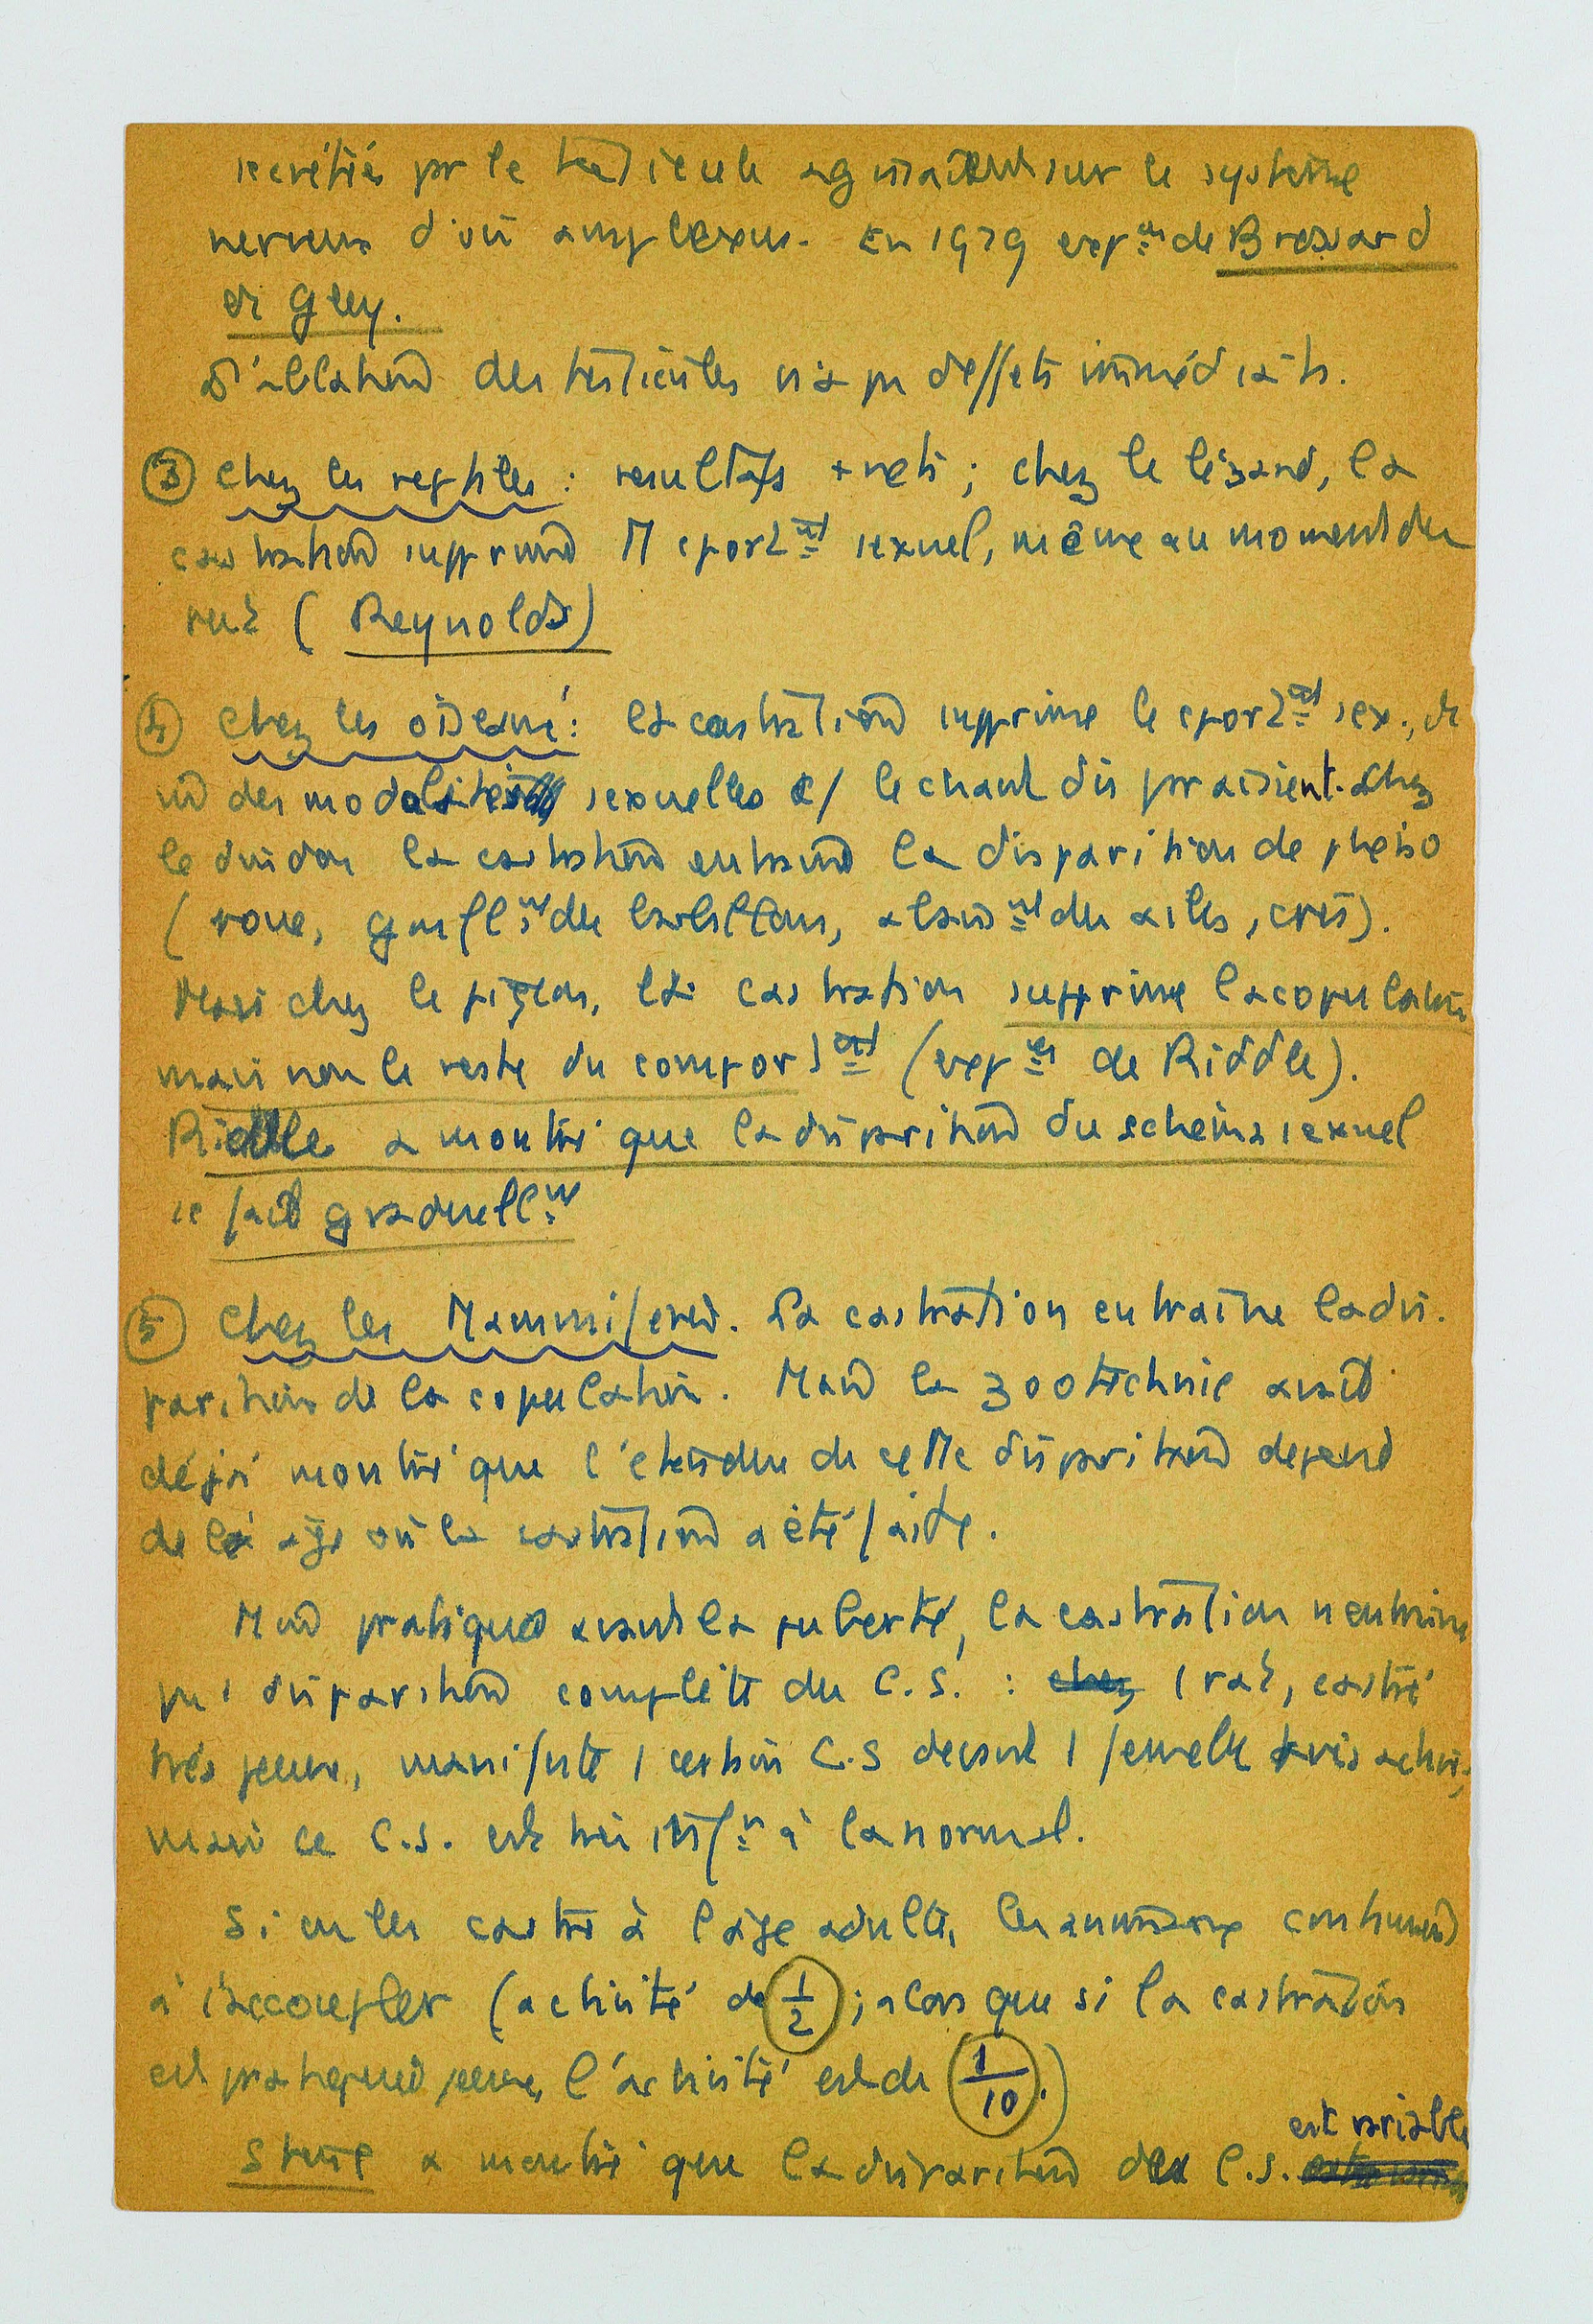 secrétiés pr le testicule agissaient sur le système
nerveux d'où amplexus. En 1929 exp.ces de Bressard
et Gley.
L'ablation des testicules n'a pu d'effets immédiats.
③ Chez les reptiles : resultats + nets ; chez le lézard, la
castration supprime tt cport.ent sexuel, même au moment du
rut (Reynolds)
④ Chez les oiseaux : la castration supprime le cport.ent sex., et
des modalités sexuelles c/ le chant disparaissent. Chez
le dindon la castration entraine la disparition de
(roue, gonfl.nt des barbillons, abaiss.nt des ailes, cris).
Mais chez le pigeon, la castration supprime la copulation
mais non le reste du comport.ent (exp.ces de Riddle).
Riddle a montré que la disparition du schéma sexuel
se fait graduell.nt
⑤ Chez les Mammifères. La castration entraîne la dis-
parition de la copulation. Mais la zootechnie avait
déjà montré que l'étendue de cette disparition depend
de l'âge où la castration a été faite.
Mais pratiquée avant la puberté, la castration n'entraine
pas 1 disparition complète du C.S. : chez 1 rat, castré
très jeune, manifeste 1 certain C.S devant 1 femelle très active,
mais ce C.S. est très inf.r à la normal.
Si on les castre à l'âge adulte, les animaux continuent
à s'accoupler (activité de 1/2 ; alors que si la castration
est pratiquée jeune, l'activité est de 1/10.)
Stone a montré que la disparition du C.S. est variable